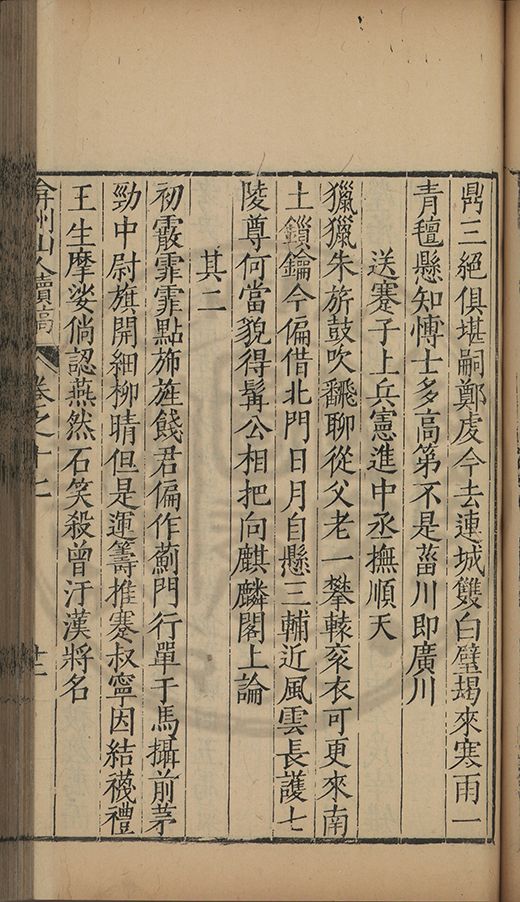 鼎三絕俱堪嗣鄭虔今去連城雙白璧朅來寒雨一
青氊懸知愽士多高第不是菑川即廣川
送蹇子上兵憲進中丞撫順天
獵獵朱旂鼓吹飜聊從父老一攀轅衮衣可更來南
土鎖鑰今偏借北門日月自懸三輔近風雲長護七
陵尊何當貌得髯公相把向麒麟閣上論
其二
初霰霏霏點斾旌餞君偏作薊門行單于馬攝前茅
勁中尉旗開細柳晴但是運籌推蹇叔寧因結襪禮
王生摩娑倘認燕然石笑殺曾汙漢將名
弇州山人續稿 卷之十七 廿二